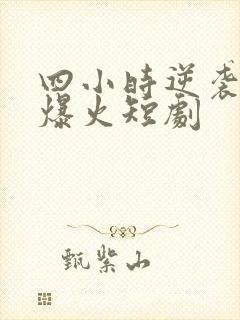 四小时逆袭
爆火短劇
甄紫山